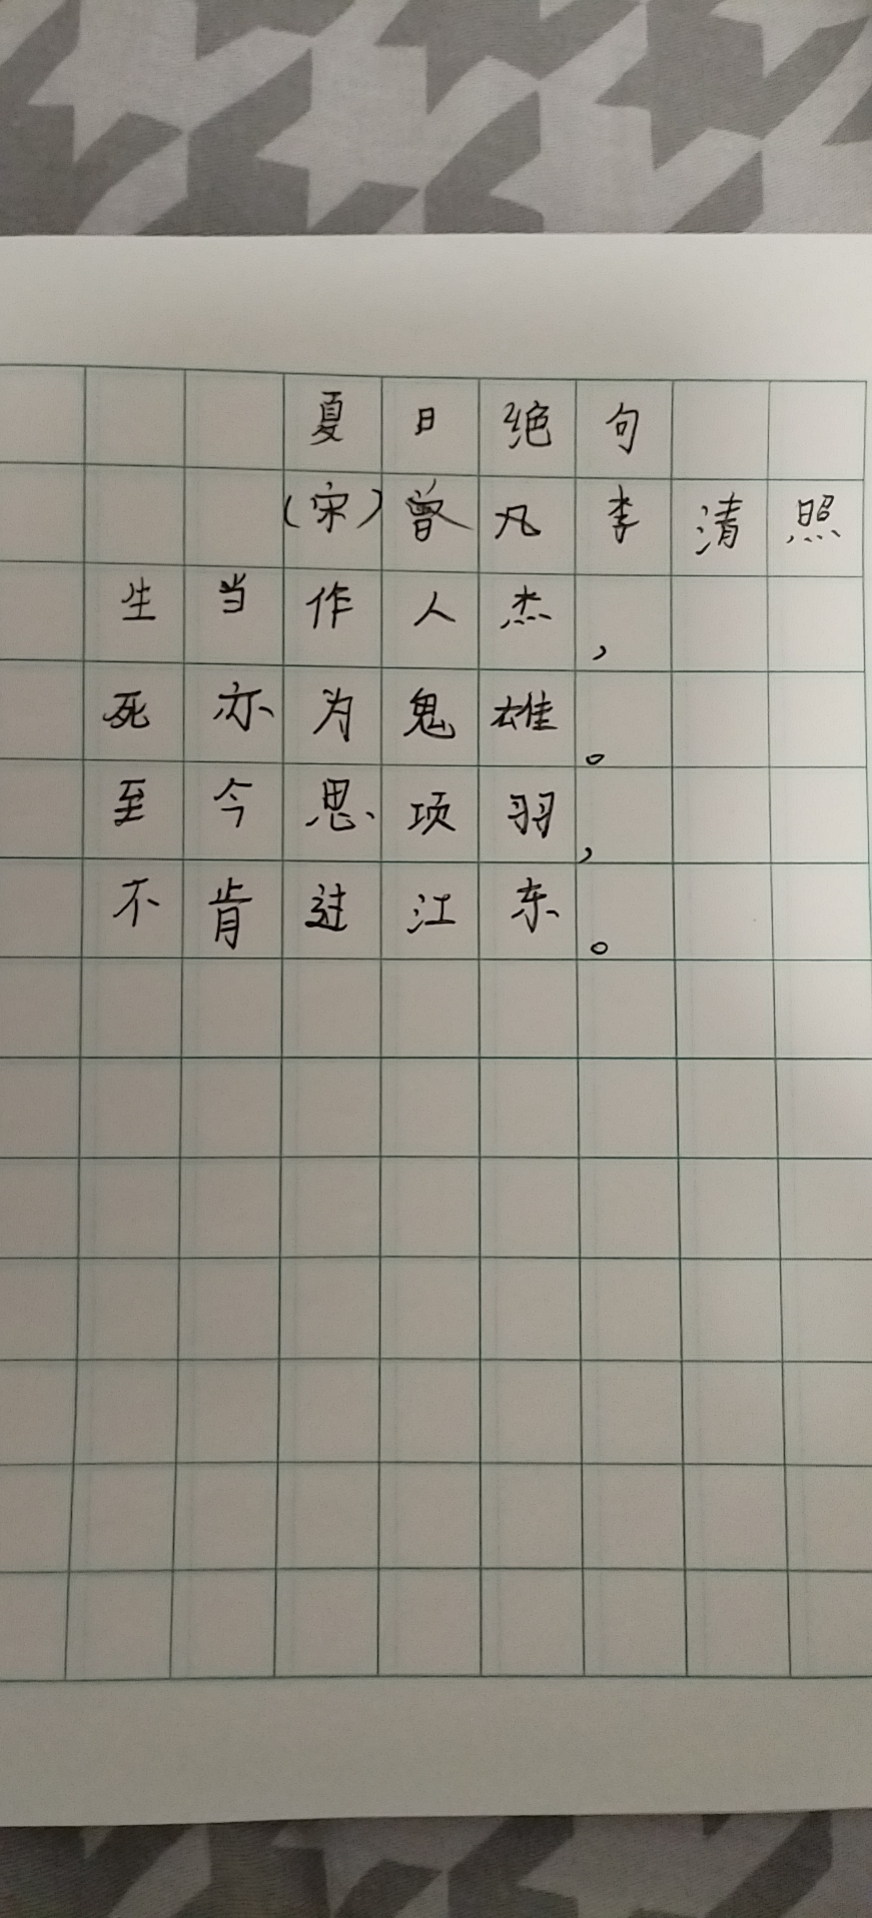 夏日绝句
(宋)曾凡李清照
生当作人杰，
死亦为鬼雄。
至今思项羽，
不肯过江东。